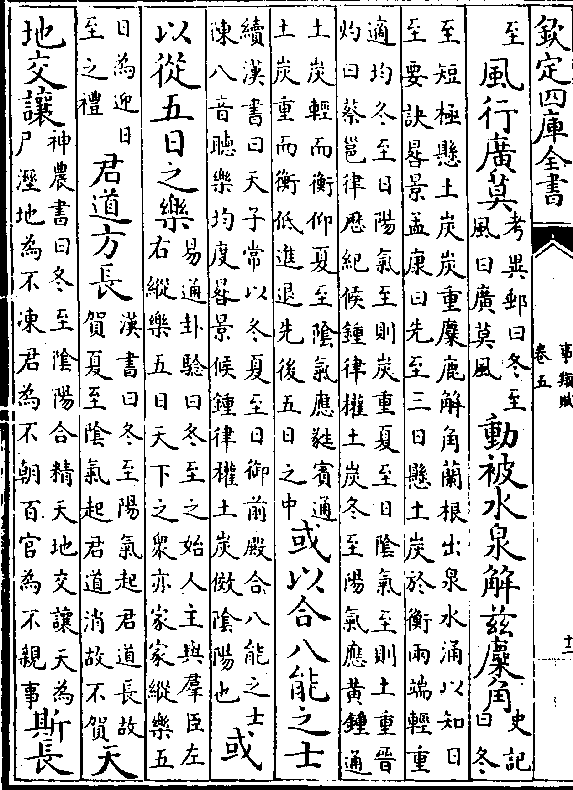 欽定四庫全書
事類賦
卷五
至
風行廣莫
考異郵曰冬至
風曰廣莫風
動被水泉解兹麋角
史記
曰冬
至短極懸土炭炭重麋鹿解角蘭根出泉水涌以知日
至要訣晷景孟康曰先至三日懸土炭於衡兩端輕重
適均冬至日陽氣至則炭重夏至日陰氣至則土重晉
灼曰蔡邕律歷紀候鍾律權土炭冬至陽氣應黄鍾通
土炭輕而衡仰夏至陰氣應蕤賓通
土炭重而衡低進退先後五日之中
或以合八能之士
續漢書曰天子常以冬夏至日御前殿合八能之士
陳八音聽樂均度晷景候鍾律權土炭傚陰陽也
或
以從五日之樂
易通卦驗曰冬至之始人主與羣臣左
右縱樂五日天下之衆亦家家縱樂五
日為迎日
至之禮
君道方長
漢書曰冬至陽氣起君道長故
賀夏至陰氣起君道消故不賀
天
地交讓
神農書曰冬至陰陽合精天地交讓天為
尸溼地為不凍君為不朝百官為不親事
斯長